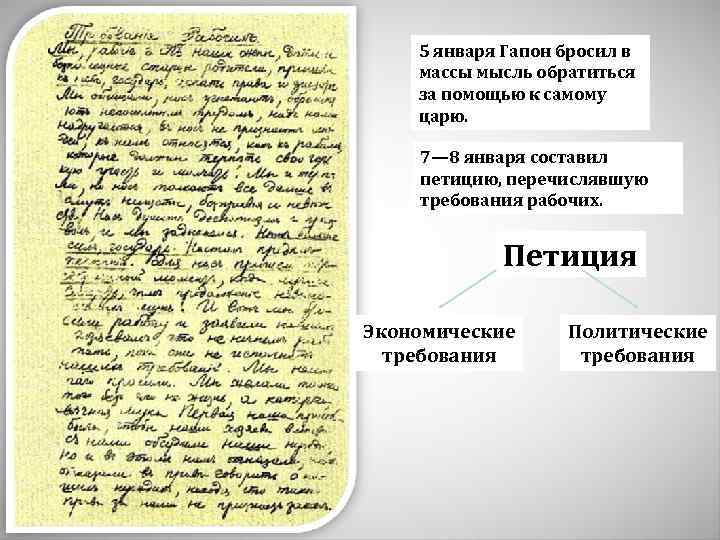 Требования Рабочихъ.
Мы, рабочіе
родители, пришли
къ тебѣ, государь, искать правды и защиты
Мы обнищали, насъ угнетаютъ,
ютъ непосильнымъ трудомъ, надъ нами
надругаются, въ насъ не признаютъ лю-
дей, къ намъ относятся, какъ къ рабамъ,
которые должны терпѣть свою горь
кую участь и молчать. Мы и терпѣ
ли, но насъ толкаютъ все дальше въ
омутъ нищеты, безправія и невѣж
ства. Насъ душитъ деспотизмъ и про
волъ и мы задыхаемся. Нѣтъ больше
силъ, государь. Насталъ предѣлъ
терпѣнія. Для насъ пришелъ
моментъ, когда
смерть, чѣмъ продолженіе
мукъ. И вотъ мы бро
сили работу и заявили
что не начнемъ
пока они не исполнятъ
нашихъ требованій. Мы
чего просили. Мы желали только
того безъ чего не жизнь, а каторга
вѣчная мука. Первая наша прось
была, чтобы наши хозяева
съ нами обсудили наши нужды
но и въ этомъ намъ отказали,
отказали въ правѣ говорить о
нашихъ нуждахъ, находя, что такого
права за нами не признаетъ законъ.
5 января Гапон бросил в
массы мысль обратиться
за помощью к самому
царю.
7—8 января составил
петицию, перечислявшую
требования рабочих.
Петиция
Экономические
требования
Политические
требования